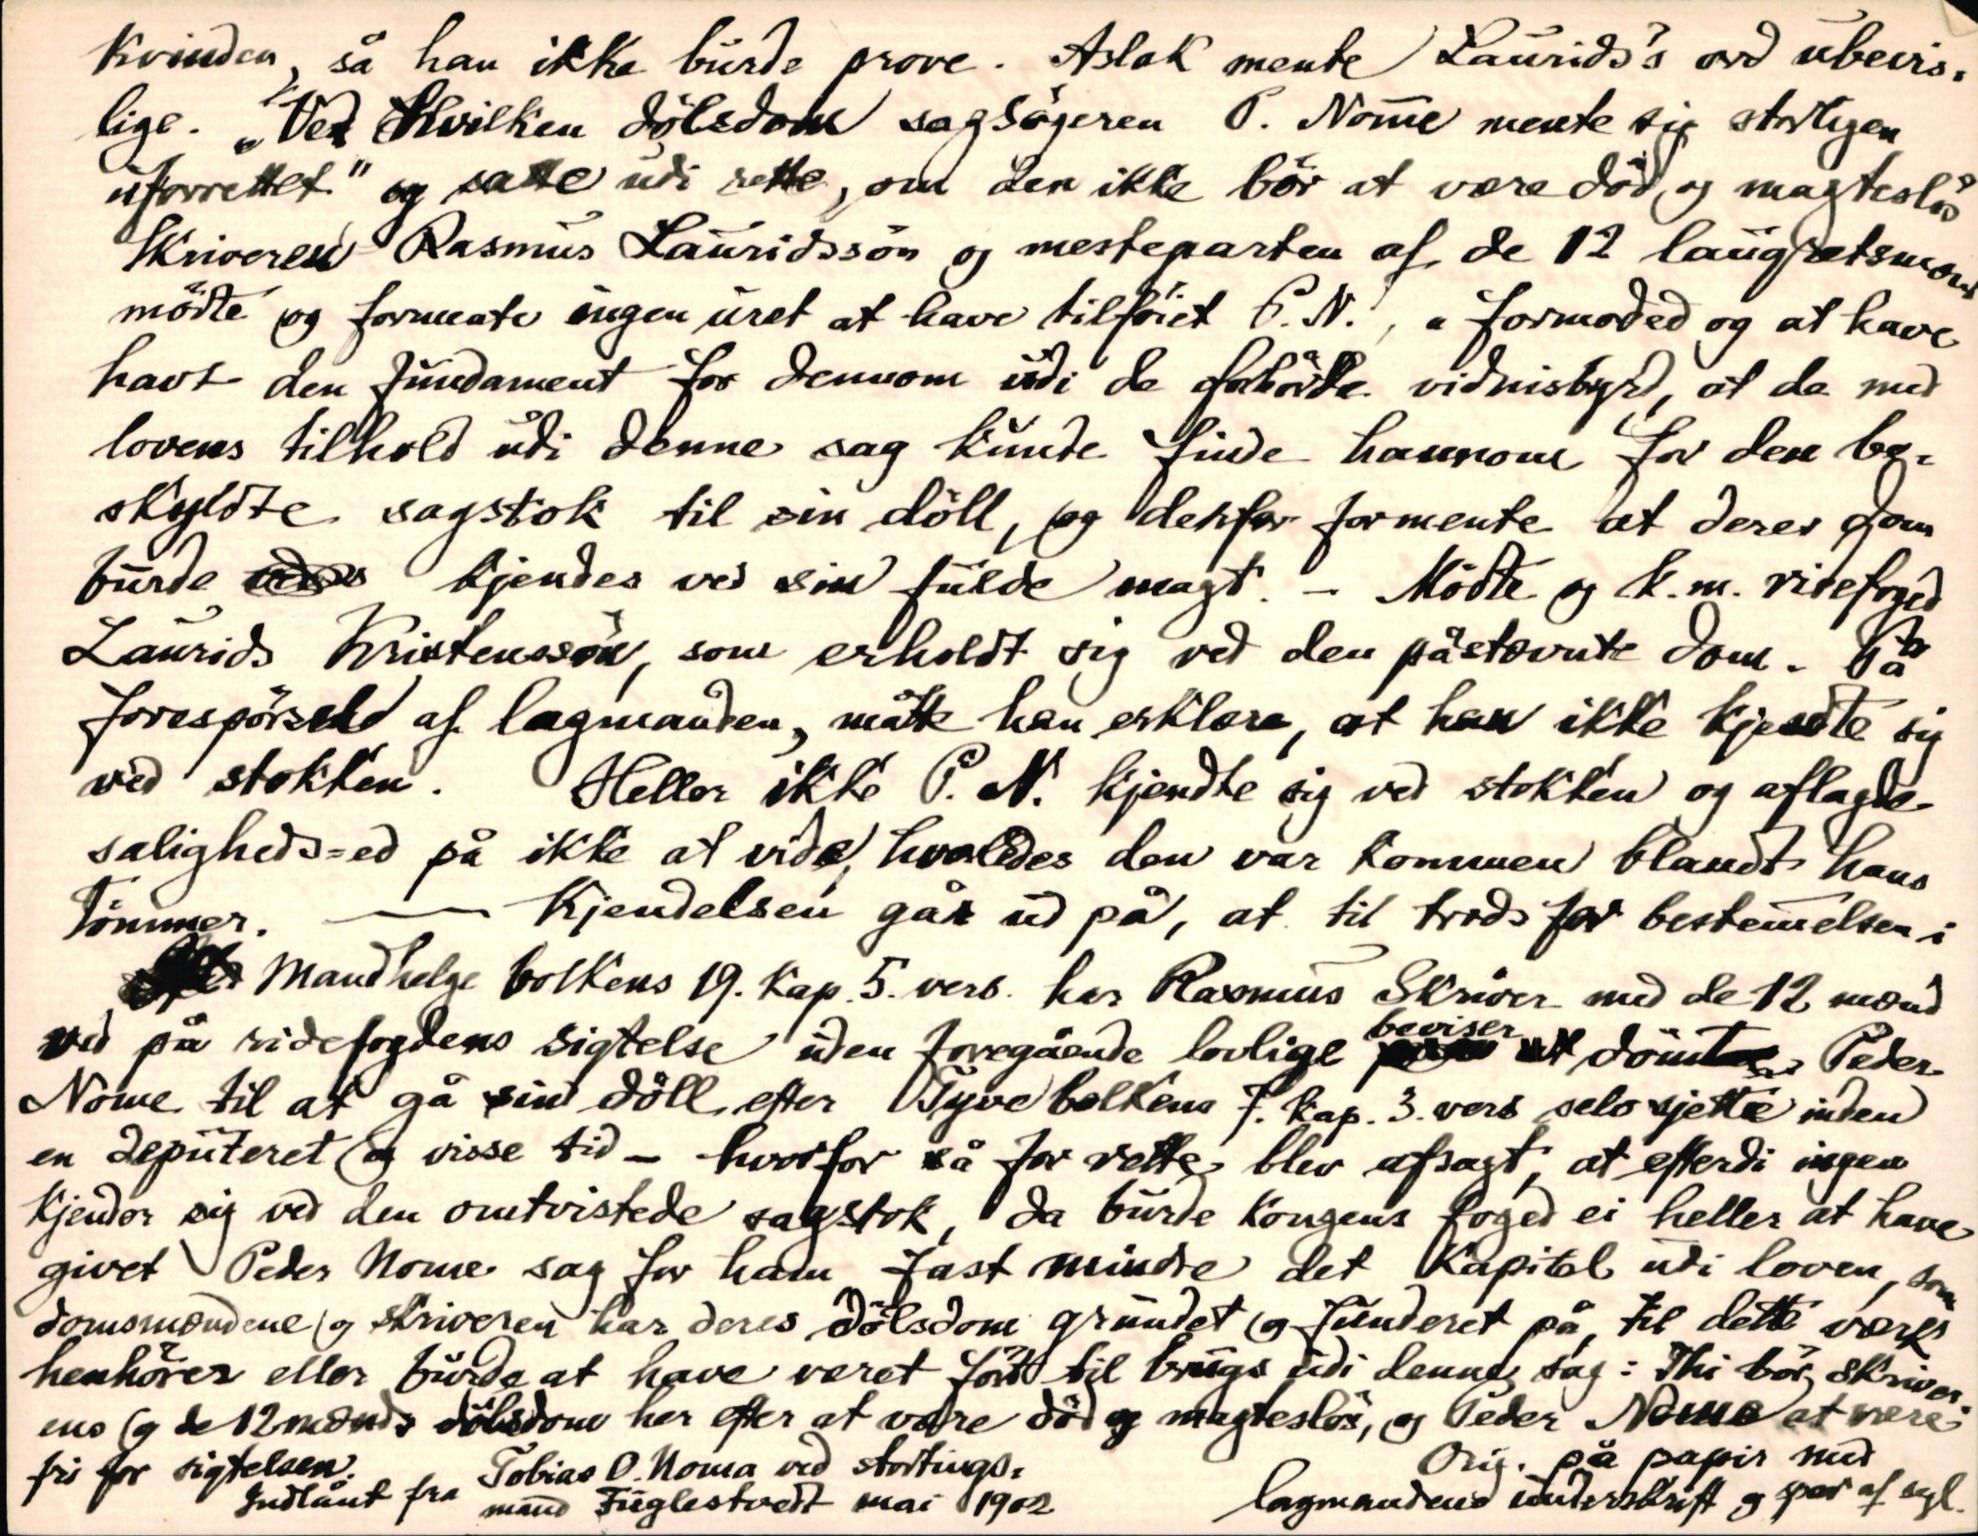 kvinden, så han ikke burde prove. Aslak mente Laurids's ord ubevis-
lige. „Ved hvilken dölsdom sagsögeren P. Nome mente sig storligen
uforrettet" og satte udi rette, om den ikke bör at være död og magteslös
Skriveren Rasmus Lauridssön og mesteparten af de 12 laugretsmænd
mödte og formente ingen uret at have tilföiet P. N., „formoded og at have
havt den fundament for dennom udi de forhörte vidnisbyrd, at de med
lovens tilhold udi denne sag kunde finde hannom for den be-
skyldte sagstok til sin döll, og derfor formente at deres dom
burde kjendes ved sin fulde magt. – Mödte og k. m. ridefoged
Laurids Kristenssön, som erholdt sig ved den påstævnte dom. På
forespörsel af lagmanden, måtte han erklære, at han ikke kjendte sig
ved stokken. Heller ikke P. N. kjendte sig ved stokken og aflagde
saligheds-ed på ikke at vide, hvorledes den var kommen blandt hans
tömmer. — Kjendelsen går ud på, at til trods for bestemelsen i
Mandhelge bolkens 19. kap. 5. vers. har Rasmus Skriver med de 12 mænd
ved på ridefogdens sigtelse uden foregående lovlige beviser dömt Peder
Nome til at gå sin döll efter Tyve bolkens 7. kap. 3. vers selv sjette inden
en deputeret og visse tid – hvorfor så for rette blev afsagt, at efterdi ingen
kjender sig ved den omtvistede sagstok, da burde kongens foged ei heller at have
givet Peder Nome sag for ham fast mindre det kapitel udi loven, som
domsmændene og skriveren har deres dölsdom grundet og funderet på, til dette værk
henhörer eller burde at have været fört til brugs udi denne sag: Thi bör skriver-
ens og de 12 mænds dölsdom her efter at være död og magteslös, og Peder Nome at være
fri for sigtelsen.
Indlånt fra Tobias O. Noma ved stortings-
mand Fuglestvedt mai 1902
Orig. på papir med
lagmandens underskrift og spor af segl.